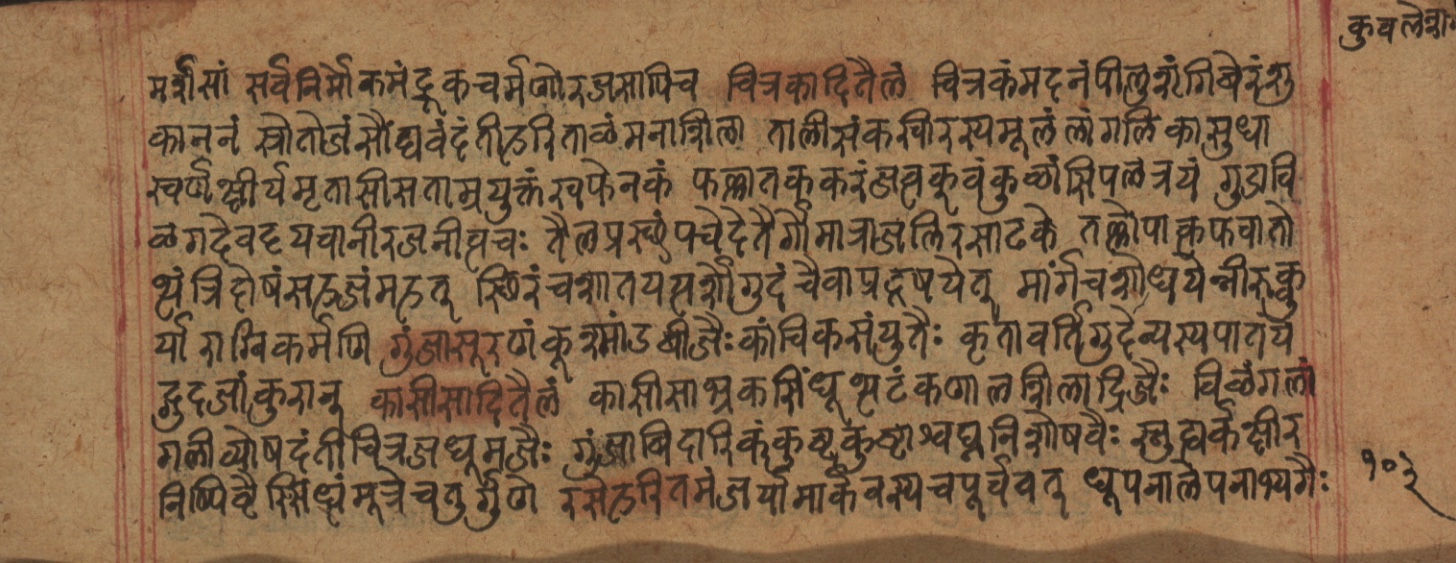 कुवलेशा
मर्शसां सर्वनिर्मोकमंदूकचर्मणोरजसापिच चित्रकादितैलं चित्रकंमदनंपीलुशृंगिबेरंशु
काननं स्रोतोजंसौंधवंदंतीहरिताळंमनाशिला तालीसंकरवीरस्यमूलं लांगलिकासुधा
स्वर्णक्षीर्यमृतासीसताम्रयुक्तंरवफेनकं फल्लातककरंजत्वकुवंकुळांसिपलत्रयं गुडावि
ळगदेवदयवानीरजनीवचः तैलप्रस्थंपचेदेतैर्गोमात्राजलिरसाढके तल्लेपाकफवातो
थं त्रिदोषंसहजंमहत् स्थिरंचशातयत्यर्शोगुदंचैवाप्रदूषयेत् मार्गंचशोधयेन्नीरुकु
र्या राग्निकर्मणि गुंजासूरणंकूश्मांडबीजैःकांचिकसंयुतैः कृतावर्तिगुदेन्यस्यपातये
द्गुदजांकुरान् कासीसादितैलं कासीसाभ्रकसिंधूत्थटंकणालशिलाद्रिजैः विळंगलां
गलीव्योषदंतीचित्रजधूमजैः गुंजाबिदारिकंकुष्टकुष्टाश्वघ्ननिशोषवैः स्नुह्यर्कक्षीर
निष्पिवैस्सिध्धंमूत्रेचतुर्गुणे रसेहरितमंजर्यामार्कवस्यचपूर्ववत् धूपनालेपनाभ्यंगैः
१०३